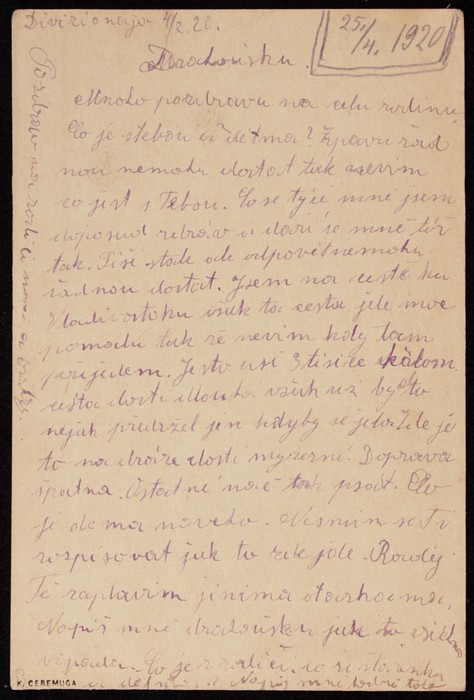 Divizionaja 4/2.20.
25./4. 1920
Drahoušku.
Mnoho pozdravu na celu rodinu
Co je stebou a dětma? Zpravu žad
nou nemohu dostat tak nevim
co jest s Tebou. Co se týče mně jsem
doposud zdráv a daří se mně též
tak. Piši stale ale odpověť nemohu
žadnou dostat. Jsem na cestě ku
Vladivostoku však ta cesta jde moc
pomalu tak že nevim kdy tam
přijedem. Je to asi 3 tisice
cesta dosti dlouha však už by to
nějak přidržel jen kdyby se jelo Zde je
to na draze dosti myzerné. Doprava
špatna. Ostatně nač psát. Co
je doma noveho. Nesmim se Ti
rozpisovat jak to zde jde. Raděj
Tě zaplavim jinima otazkoma.
Napiš mně drahoušku jak to
vypada. Co je
Napiš mně hodně
Pozdrav na rodiče
K. CEREMUGA